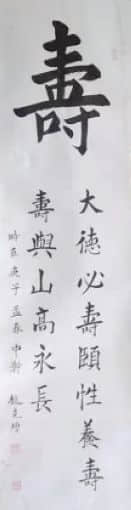 壽
大德必壽頤性養壽
壽與山高永長
時在庚子孟春中澣